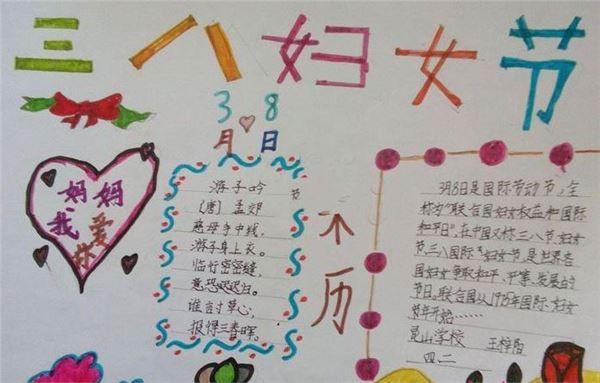 三八妇女节
3 8
月 日
妈妈
我爱
你
游子吟
[唐]孟郊
慈母手中线,
游子身上衣。
临行密密缝,
意恐迟迟归。
谁言寸草心,
报得三春晖。
节
不
历
3月8日是国际劳动节,全
称为"联合国妇女权益和国际
和平日",在中国又称三八妇女
节.三八国际妇女节,是世界各
国妇女争取和平、平等、发展的
节日。联合国从1975年国际妇女
年开始……
昆山学校 王梓
四二